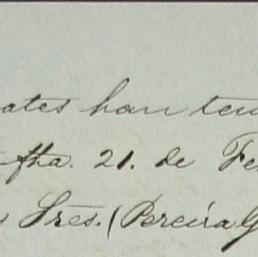 ates han ten
fha. 21. de Fe
s Sres. (Pereira G